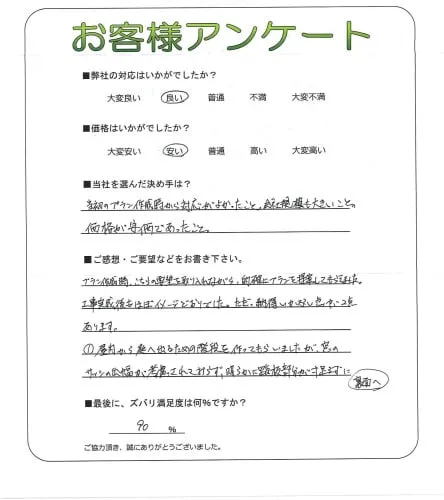 お客様アンケート
■弊社の対応はいかがでしたか?
大変良い 良い 普通 不満 大変不満
■価格はいかがでしたか?
大変安い 安い 普通 高い 大変高い
■当社を選んだ決め手は?
プラン作成時から対応がよかったこと、規模も大きいこと。
価格が安価であったこと。
■ご感想・ご要望などをお書き下さい。
プラン作成時、こちらの要望を取り入れながら、的確にプランを提案してもらえました。
工事完成後もほぼイメージどおりでした。ただ、納得しかねる点が2点
あります。
①屋内から庭へ出るための階段を作ってもらいましたが、窓の
サッシの出幅が考慮されておらず、明らかに踏板部分が寸足らずに
裏面へ
■最後に、ズバリ満足度は何%ですか?
90 %
ご協力頂き、誠にありがとうございました。